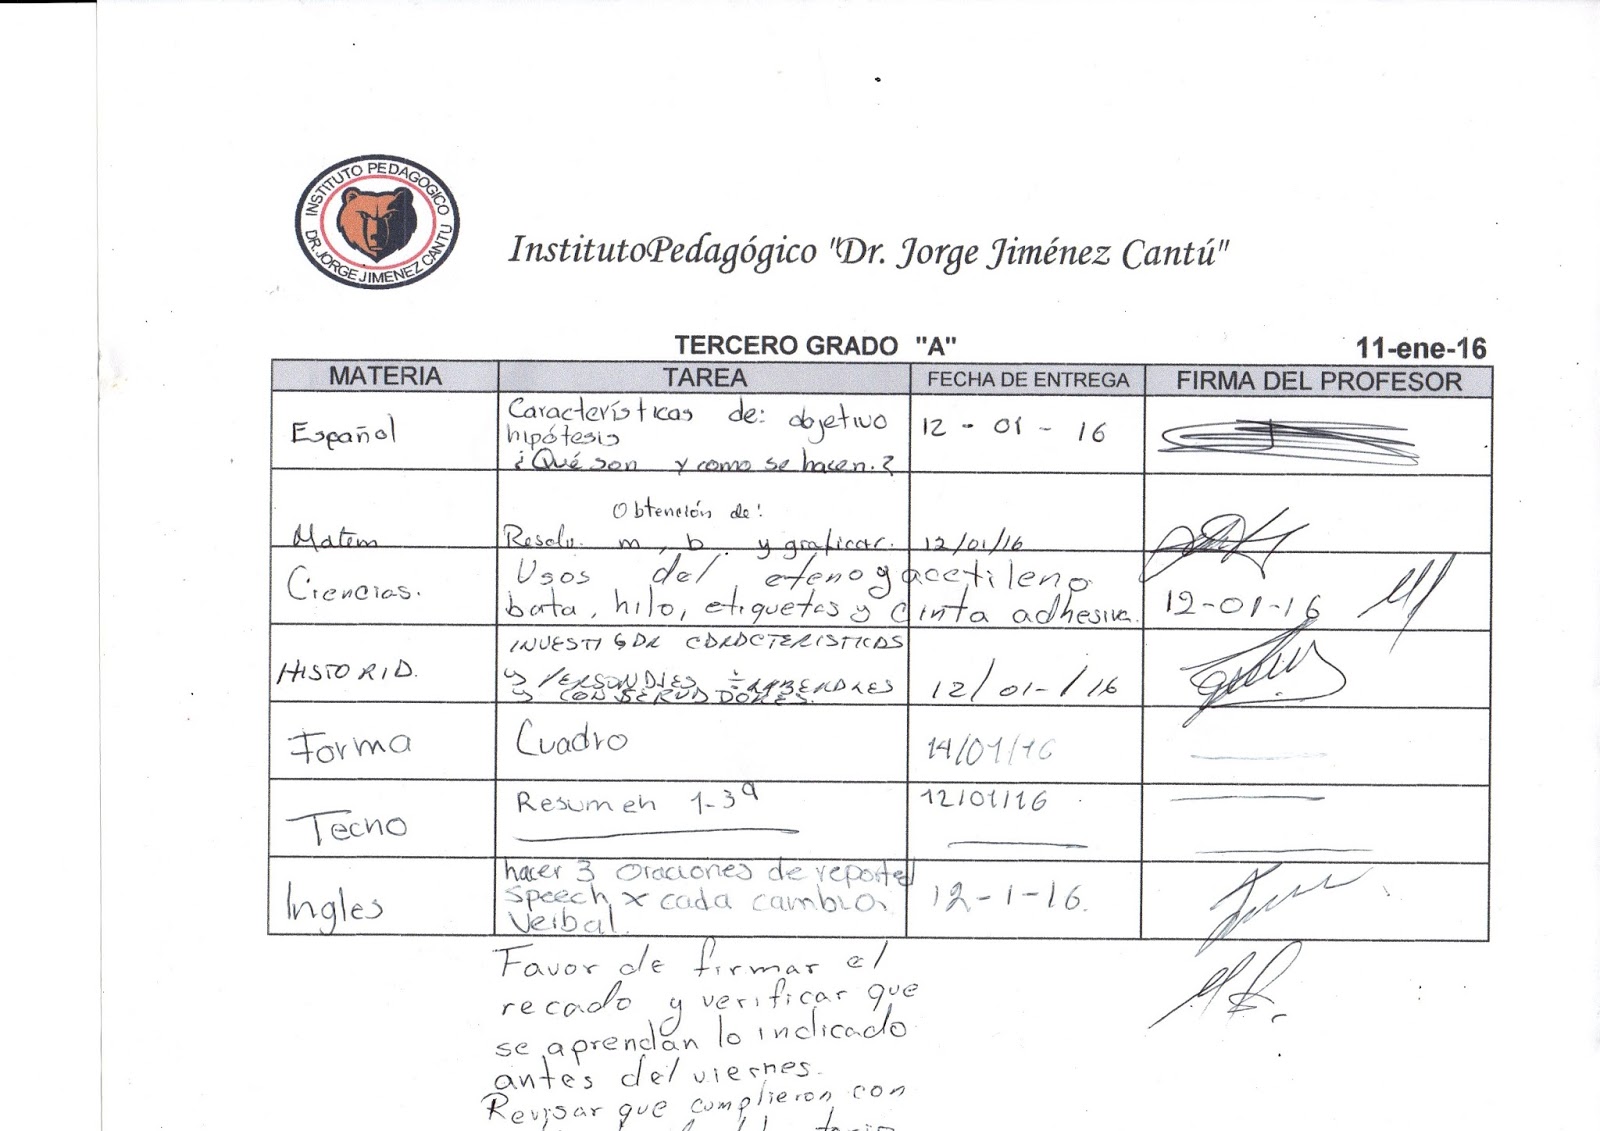 INSTITUTO PEDAGOGICO
DR. JORGE JIMENEZ CANTU
InstitutoPedagógico "Dr. Jorge Jiménez Cantú"
TERCERO GRADO "A" 11-ene-16
MATERIA TAREA FECHA DE ENTREGA FIRMA DEL PROFESOR
Español
Características de: objetivo
hipótesis
¿Qué son y como se hacen.?
12 - 01 - 16
Matem
Obtención de:
Resolv. m, b y graficar.
12/01/16
Ciencias.
Usos del eteno y acetileno
bata, hilo, etiquetas y cinta adhesiva.
12-01-16
HISTORIA.
INVESTIGAR CARACTERISTICAS
y PERSONAJES LIBERALES
y CONSERVADORES
12/01-/16
Forma
Cuadro
14/01/16
Tecno
Resumen 1-3ª
12/01/16
Ingles
hacer 3 oraciones de reported
speech x cada cambio
Verbal.
12-1-16.
Favor de firmar el
recado y verificar que
se aprendan lo indicado
antes del viernes.
Revisar que cumplieron con